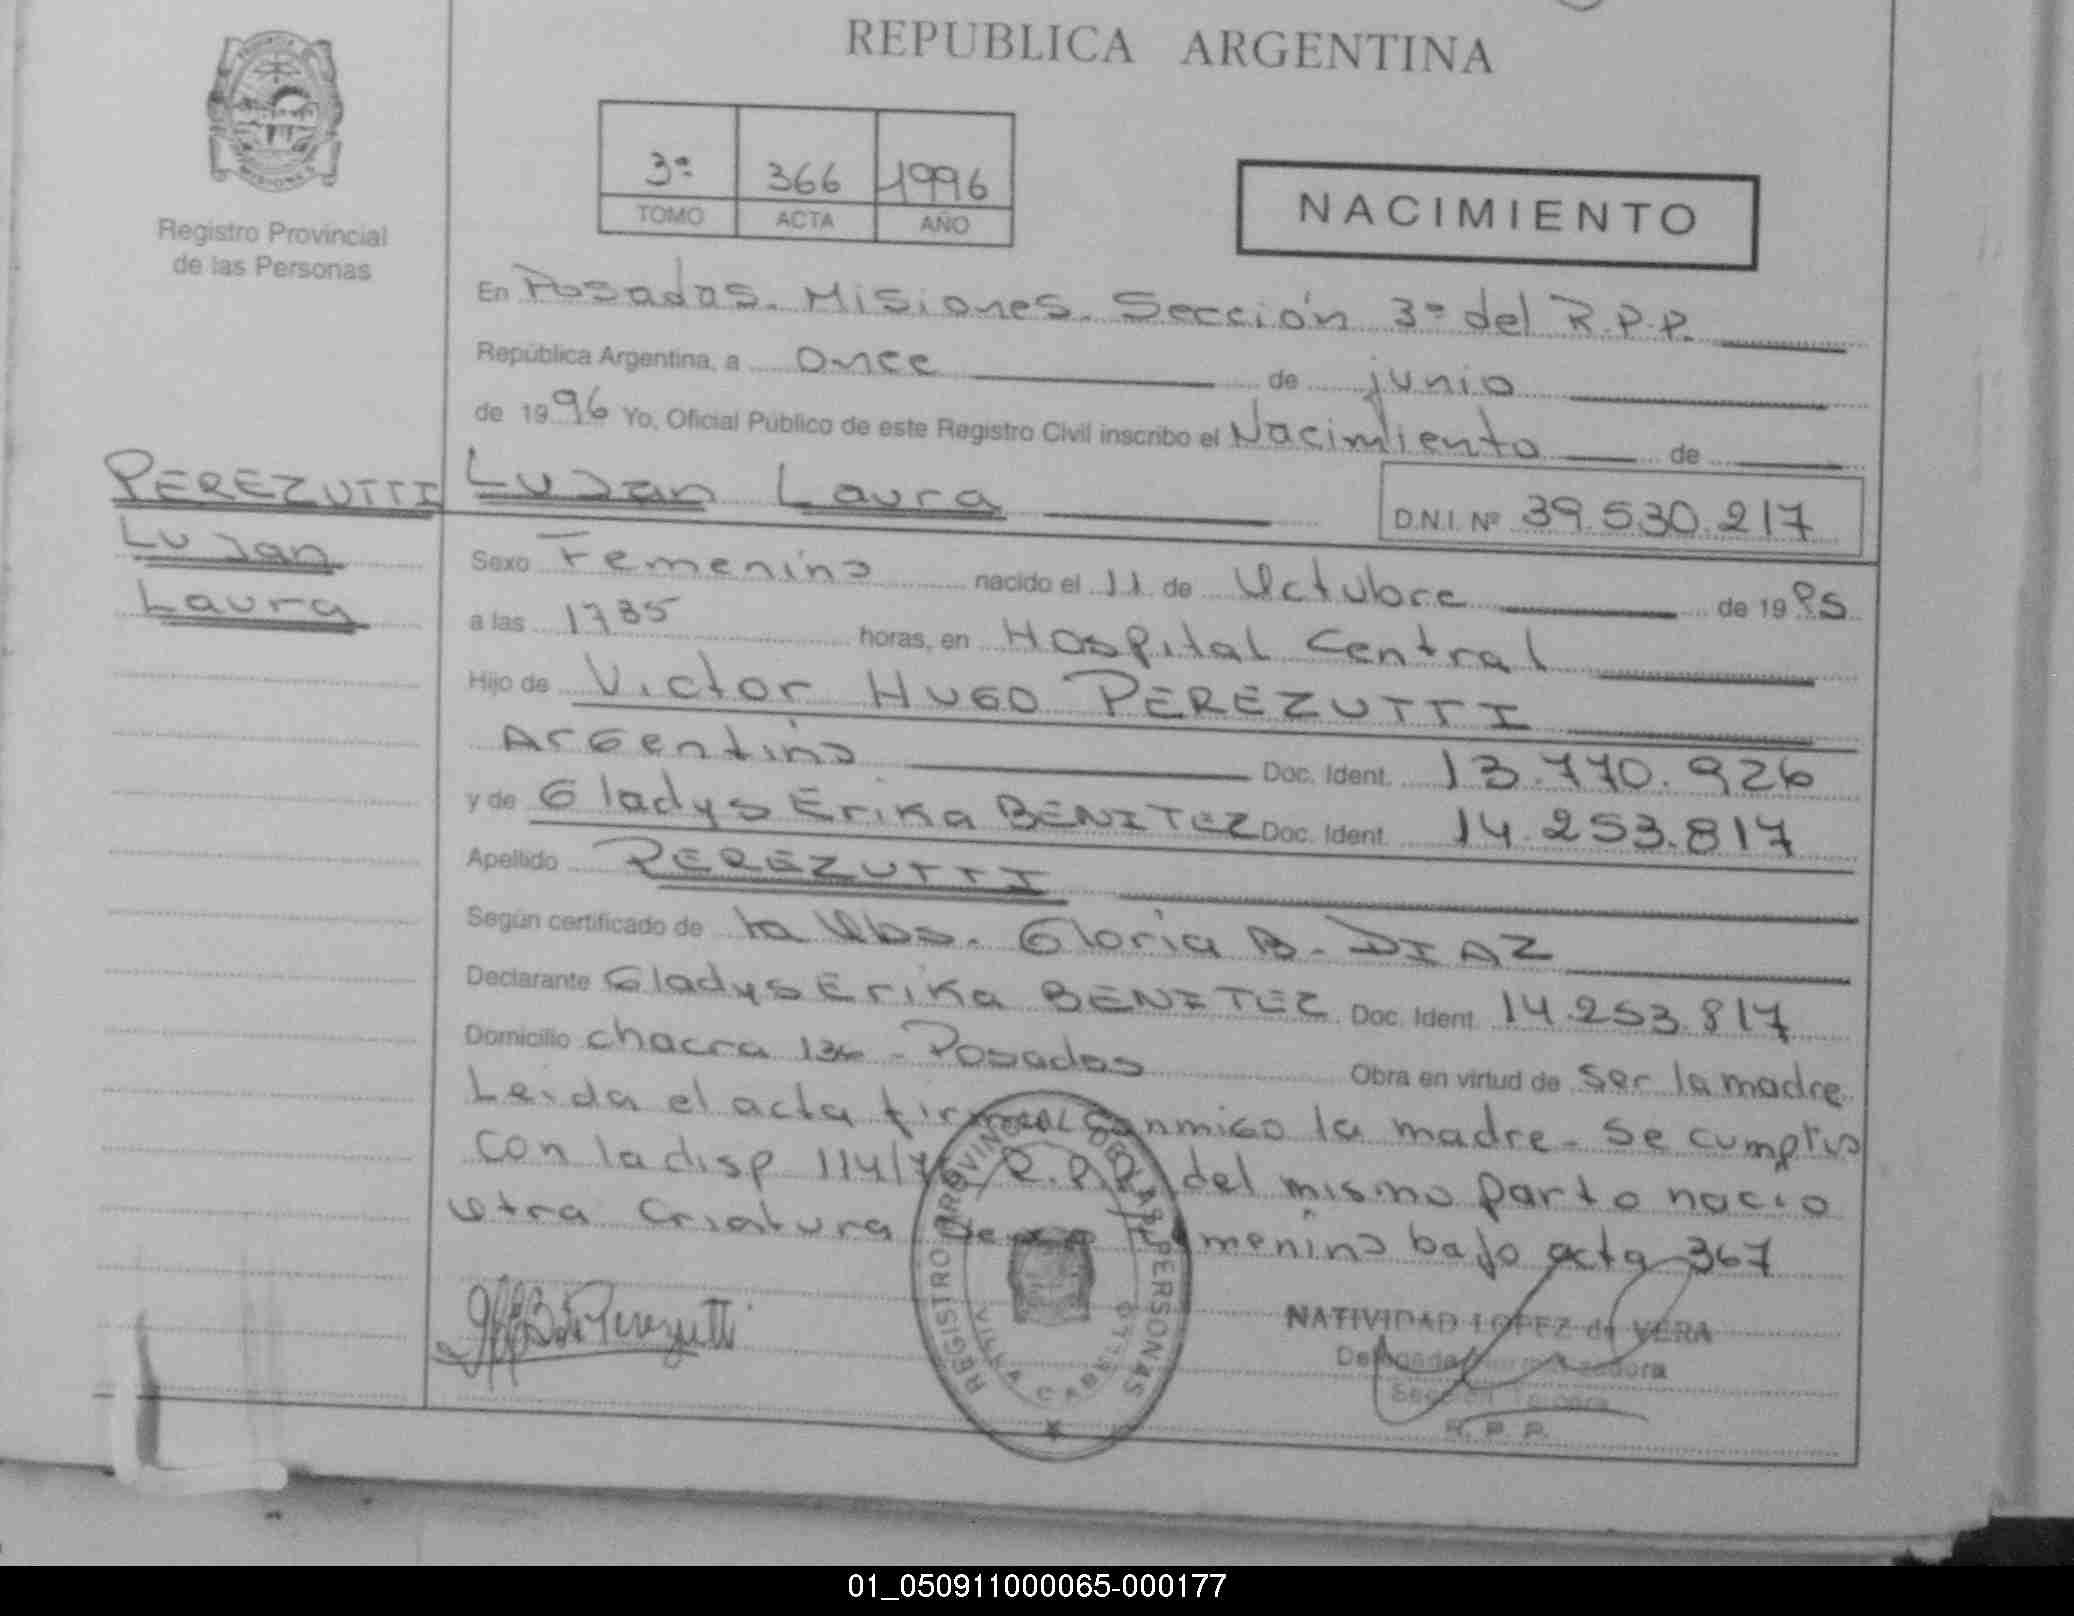 REPUBLICA ARGENTINA
MISIONES
Registro Provincial
de las Personas
3º 366 1996
TOMO ACTA AÑO
NACIMIENTO
En Posadas. Misiones. Sección 3º del R.P.P.
República Argentina, a once de junio
de 1996 Yo, Oficial Público de este Registro Civil inscribo el Nacimiento de
PEREZUTTI
Lujan
Laura
Lujan Laura D.N.I. Nº 39.530.217
Sexo Femenino nacido el 11 de Octubre de 1995
a las 1735 horas, en Hospital Central
Hijo de Victor Hugo PEREZUTTI
Argentino Doc. Ident. 13.770.926
y de Gladys Erika BENITEZ Doc. Ident. 14.253.817
Apellido PEREZUTTI
Según certificado de la Obs. Gloria B. DIAZ
Declarante Gladys Erika BENITEZ Doc. Ident. 14.253.817
Domicilio chacra 136 - Posadas Obra en virtud de ser la madre
Leida el acta firma conmigo la madre - se cumplio
con la disp 114/ R.P.P. del mismo parto nacio
otra criatura sexo femenino bajo acta 367
REGISTRO PROVINCIAL DE LAS PERSONAS
VILLA CABELLO
B. de Perezutti
NATIVIDAD LOPEZ de VERA
Delegada
R. P. P.
01_050911000065-000177